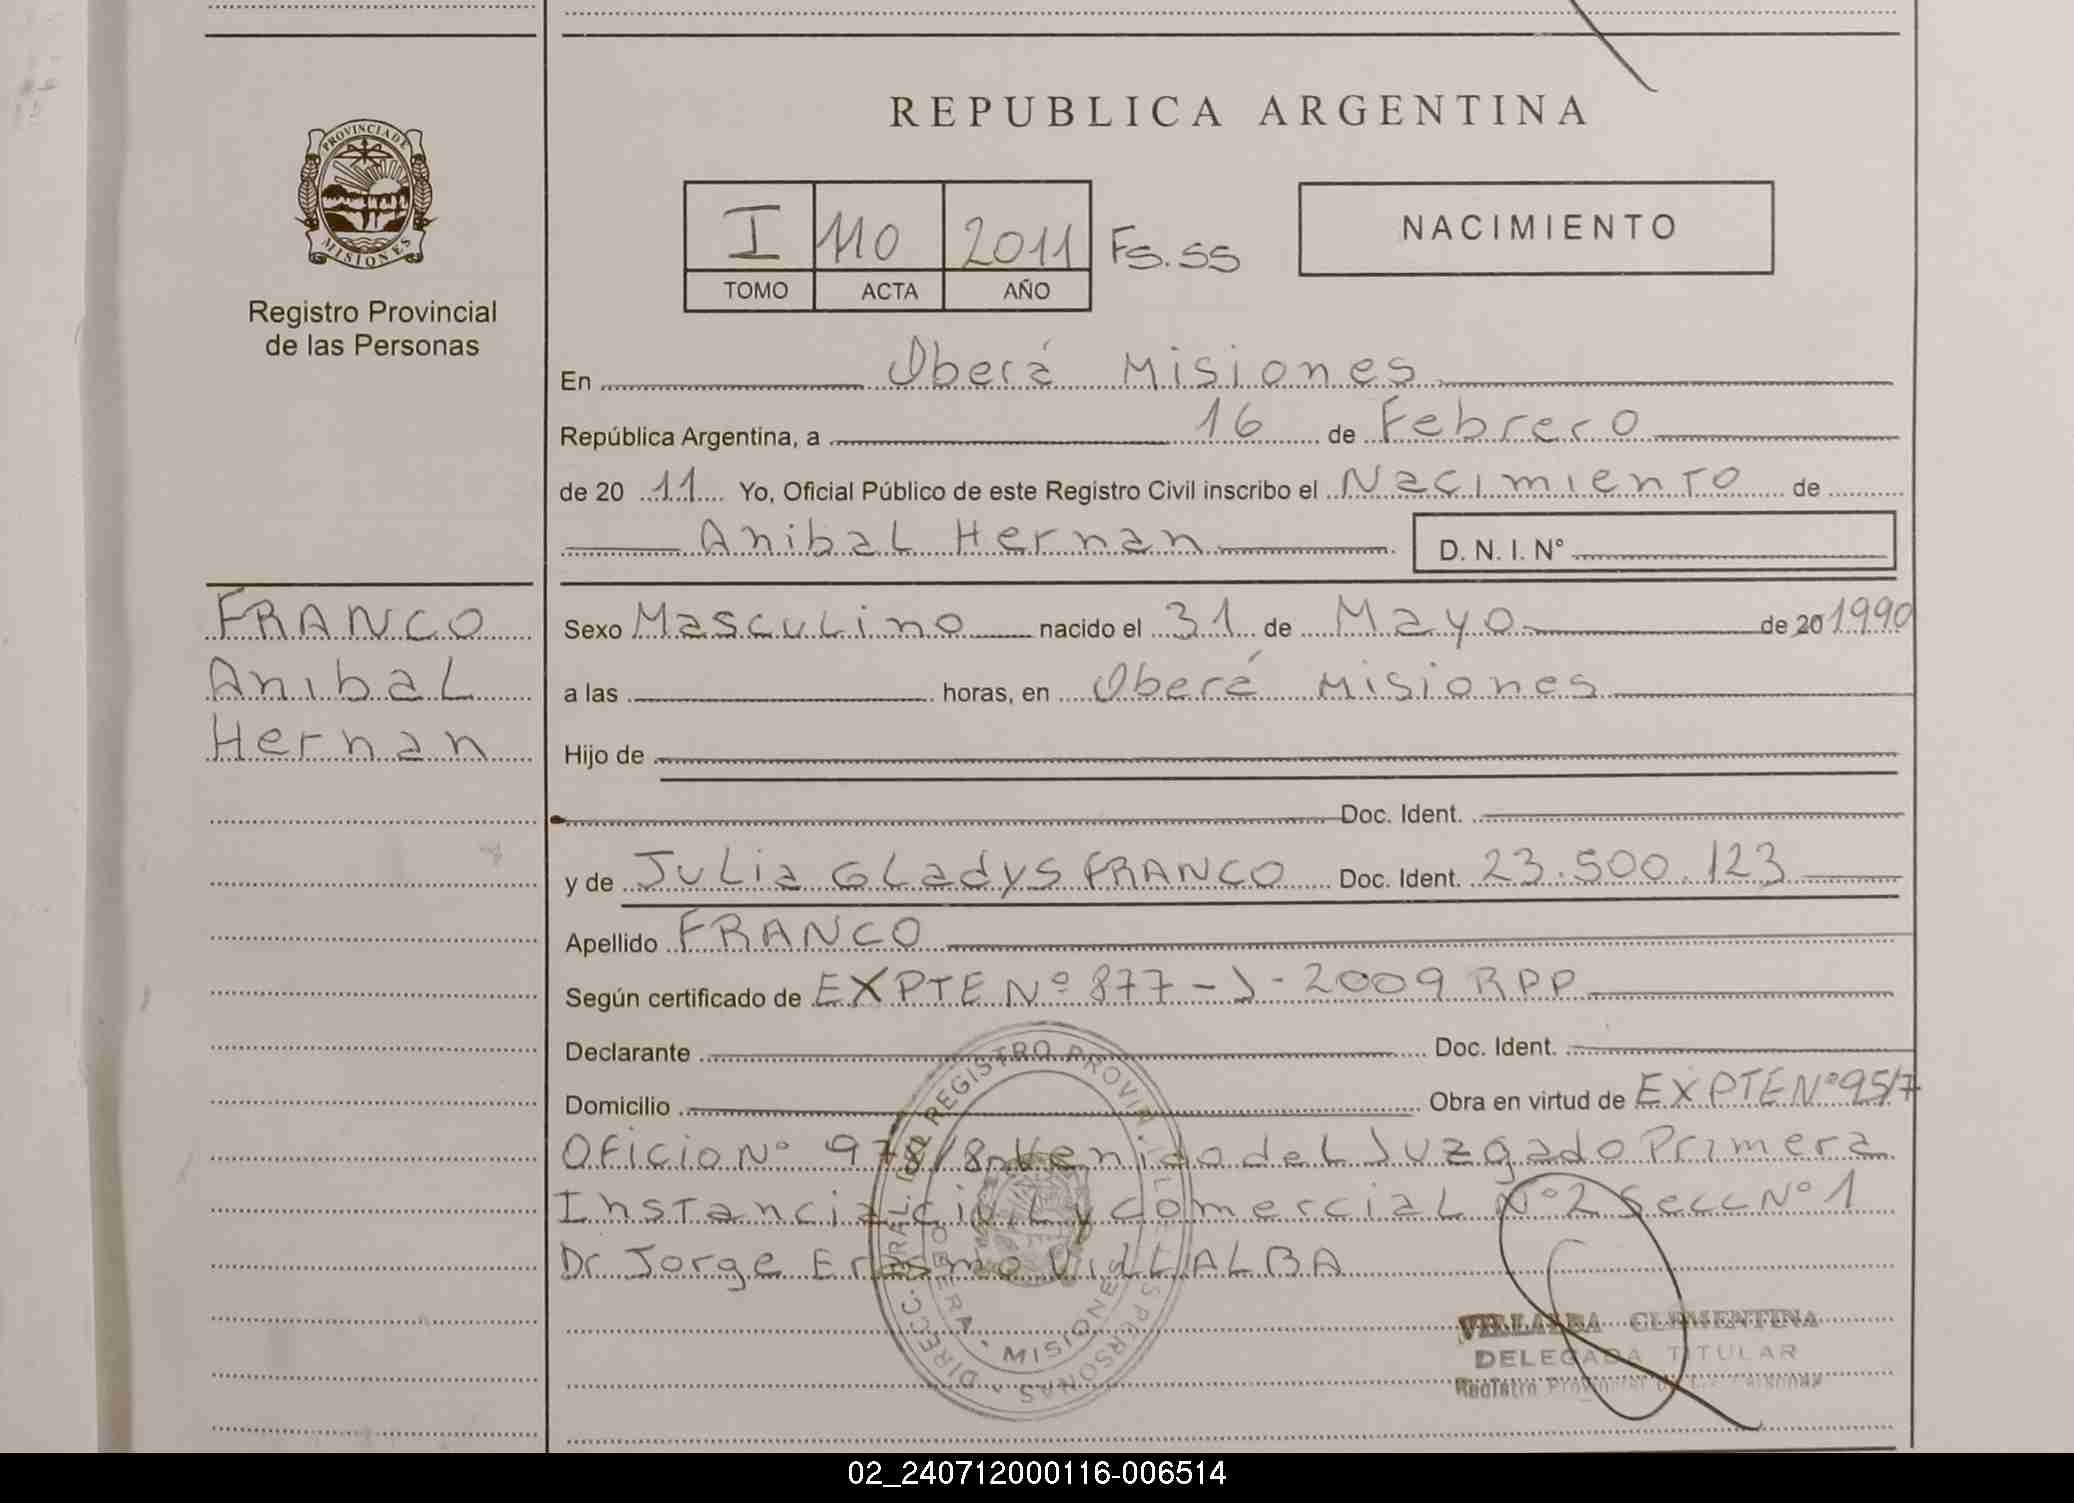 REPUBLICA ARGENTINA
PROVINCIA DE MISIONES
Registro Provincial
de las Personas
I 110 2011 Fs. 55
TOMO ACTA AÑO
NACIMIENTO
En Oberá Misiones
República Argentina, a 16 de Febrero
de 20 11 Yo, Oficial Público de este Registro Civil inscribo el Nacimiento de
Anibal Hernan D. N. I. N°
FRANCO
Anibal
Hernan
Sexo Masculino nacido el 31 de Mayo de 20 1990
a las horas, en Oberá Misiones
Hijo de
Doc. Ident.
y de Julia Gladys FRANCO Doc. Ident. 23.500.123
Apellido FRANCO
Según certificado de EXPTE Nº 877-J-2009 RPP
Declarante Doc. Ident.
Domicilio Obra en virtud de EXPTE Nº 95/7
Oficio Nº del Juzgado Primera
Instancia Civil y Comercial Nº 2 Secc Nº 1
Dr. Jorge Erasmo VILLALBA
DIRECC. GRAL. DEL REGISTRO PROVINCIAL DE LAS PERSONAS
OBERA - MISIONES
VILLALBA CLEMENTINA
DELEGADA TITULAR
Registro Provincial de las Personas
02_240712000116-006514